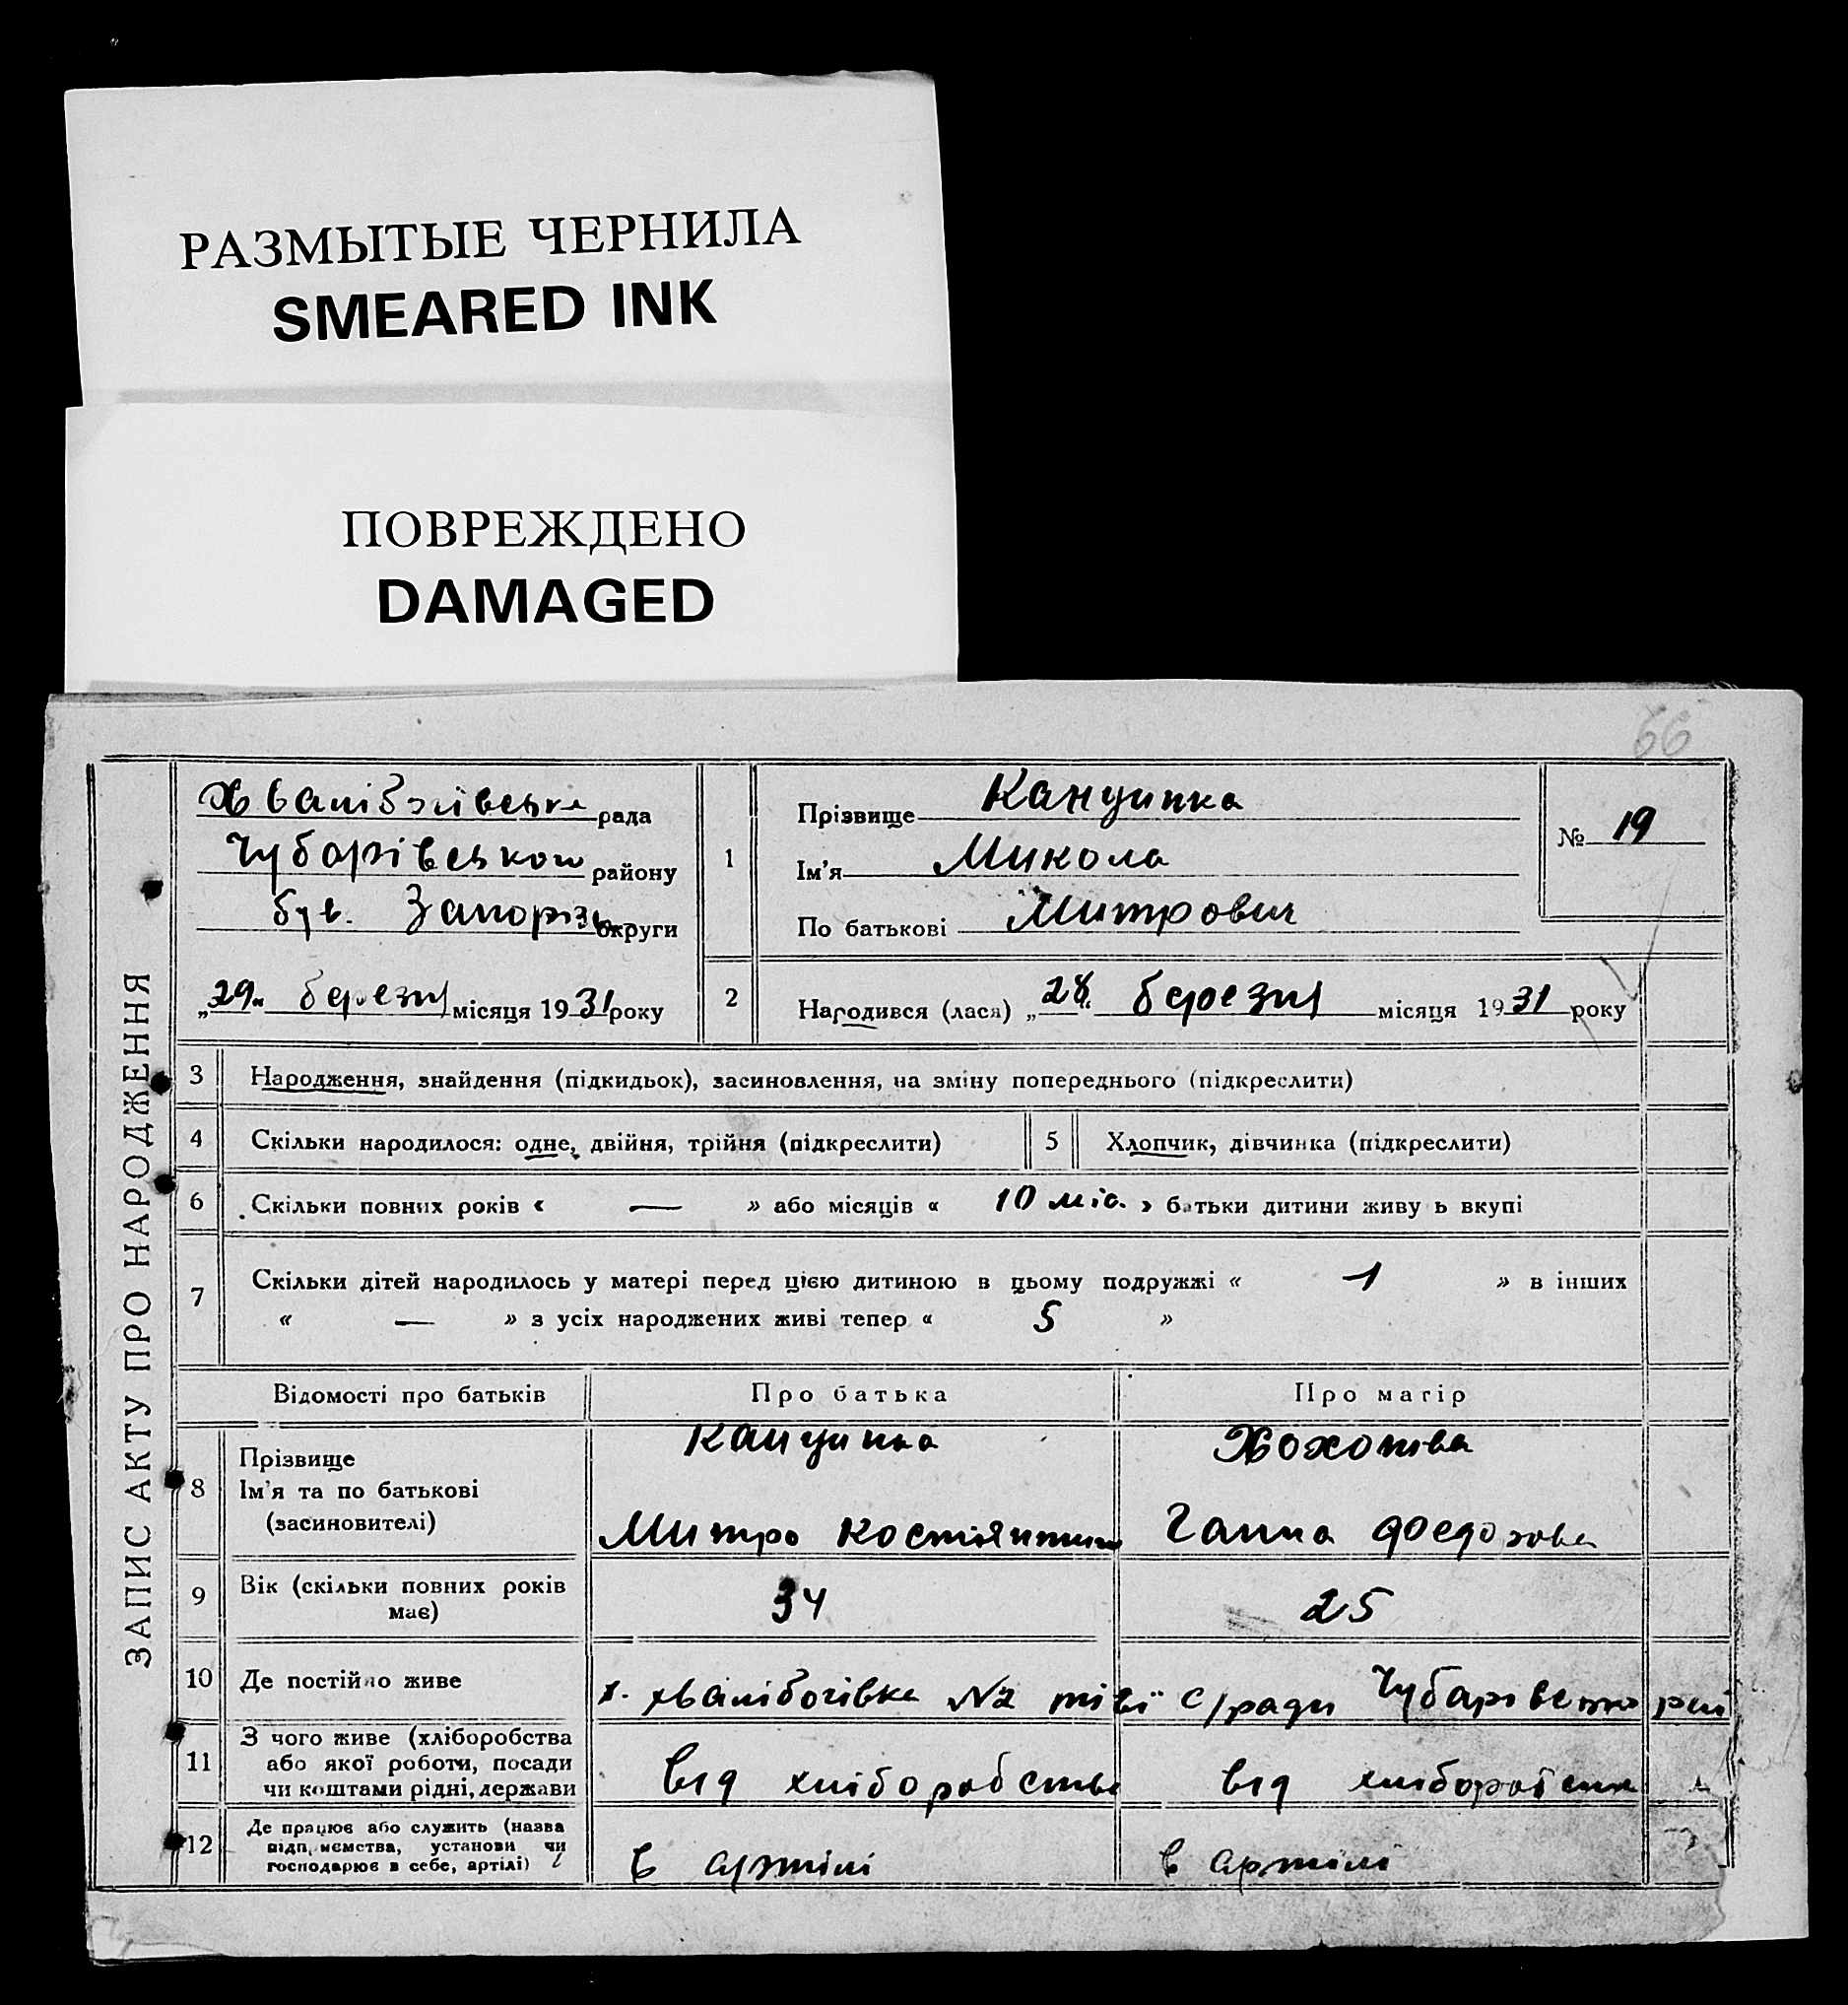 РАЗМЫТЫЕ ЧЕРНИЛА
SMEARED INK
ПОВРЕЖДЕНО
DAMAGED
66
ЗАПИС АКТУ ПРО НАРОДЖЕННЯ
рада
Чубарівського району
був. Запорізь округи
„29“ березня місяця 1931 року
1
Прізвище
Ім’я Микола
По батькові Митрович
№ 19
2 Народився (лася) „28“ березня місяця 1931 року
3 Народження, знайдення (підкидьок), засиновлення, на зміну попереднього (підкреслити)
4 Скільки народилося: одне, двійня, трійня (підкреслити) 5 Хлопчик, дівчинка (підкреслити)
6 Скільки повних років « — » або місяців « 10 міс. » батьки дитини живу ь вкупі
7 Скільки дітей народилось у матері перед цією дитиною в цьому подружжі « 1 » в інших
« — » з усіх народжених живі тепер « 5 »
Відомості про батьків Про батька Про матір
8 Прізвище
Ім’я та по батькові
(засиновителі)
Митро Ганна Федорова
9 Вік (скільки повних років має) 34 25
10 Де постійно живе х. №2 с/ради
11 З чого живе (хліборобства
або якої роботи, посади
чи коштами рідні, держави
від хліборобства від
12 Де працює або служить (назва
підприємства, установи чи
господарює в себе, артілі)
в артілі в артілі